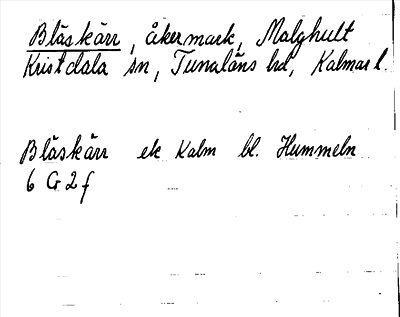 Blåskärr, åkermark, Malghult
Kristdala sn, Tunaläns hd, Kalmar l.
Blåskärr ek Kalm bl. Hummeln
6 G 2 f